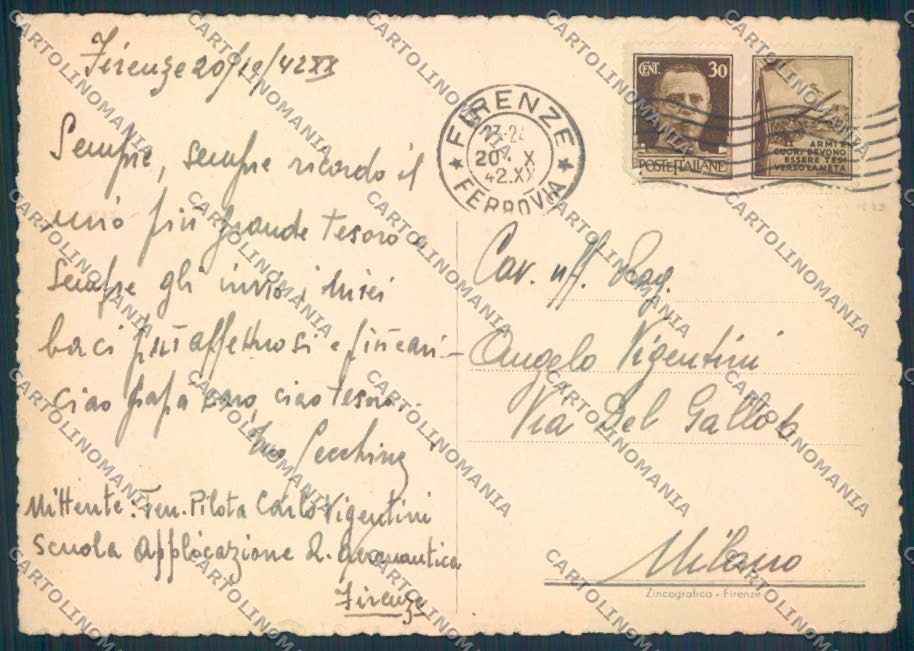 Firenze 20/10/42 XX
Sempre, sempre ricordo il
mio più grande tesoro e
sempre gli invio i miei
baci più affettuosi e più cari -
Ciao papà caro, ciao tesoro.
tuo Cecchino
Mittente: Ten. Pilota Carlo Vigentini
Scuola Applicazione R. Aeronautica
Firenze
FIRENZE
23-24
20 X
42.XX
FERROVIA
CENT. 30
POSTE ITALIANE
ARMI E
CUORI DEVONO
ESSERE TESI
VERSO LA META
Cav. uff. Rag.
Angelo Vigentini
Via Del Gallo 6
Milano
Zincografica - Firenze
CARTOLINOMANIA